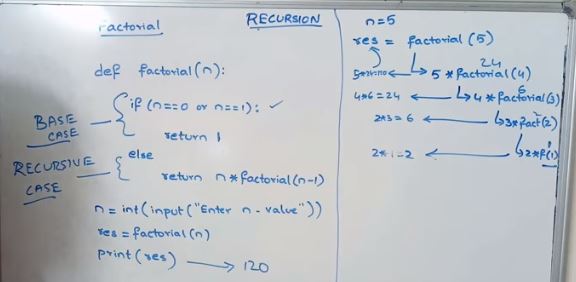 Factorial
RECURSION
def factorial(n):
BASE CASE
if (n==0 or n==1): ✓
return 1
RECURSIVE CASE
else
return n*factorial(n-1)
n=int(input("Enter n-value"))
res=factorial(n)
print(res) → 120
n=5
res = factorial(5)
24
5*24=120 ← 5*factorial(4)
6
4*6=24 ← 4*factorial(3)
2*3=6 ← 3*fact(2)
1
2*1=2 ← 2*f(1)